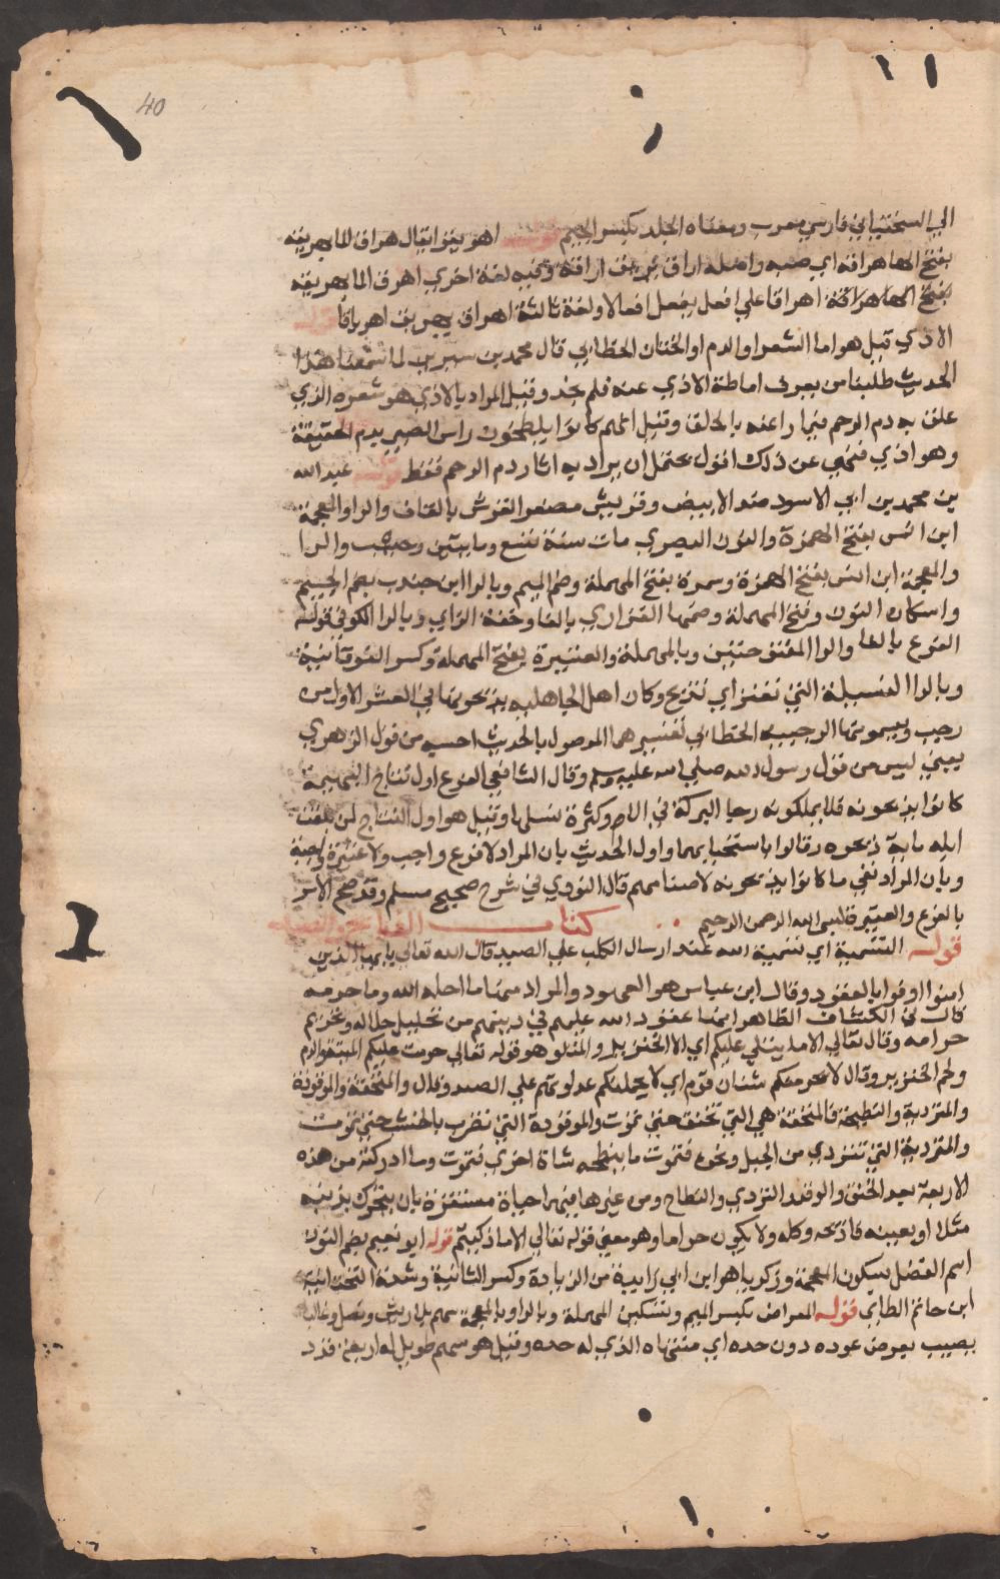 40
الي السختياني فارسي معرب ومعناه الجلد بكسر الجيم قوله اهريقوا يقال هراق الماء يهريقه
بفتح الها هراقة اي صبه واصله اراق يريق اراقة وفيه لغة اخري اهرق الما يهريقه
بفتح الها هراقة اهراقا علي افعل يفعل افعالا ولغة ثالثة اهراق يهريق اهرياقا قوله
الاذي قيل هو اما الشعر او الدم او الختان الخطابي قال محمد بن سيرين لما سمعنا هذا
الحديث طلبنا من يعرف اماطة الاذي عنه فلم نجد وقيل المراد بالاذي هو شعره الذي
علق به دم الرحم فيماط عنه بالحلق وقيل انهم كانوا يلطخون راس الصبي بدم العقيقة
وهو اذي فنهي عن ذلك اقول يحتمل ان يراد به اثار دم الرحم فقط قوله عبد الله
بن محمد بن ابي الاسود ضد الابيض وقريش مصغر القرش بالقاف والرا والمعجمة
ابن انس بفتح الهمزة والنون البصري مات سنة تسع ومايتين وحبيب والرا
والمعجمة ابن انس بفتح الهمزة وسمرة بفتح المهملة وضم الميم وبالرا ابن جندب بضم الجيم
واسكان النون وفتح المهملة وضمها الفزاري بالفا وخفة الزاي وبالرا الكوفي قوله
الفرع بالفا والرا المفتوحتين وبالمهملة والعتيرة بفتح المهملة وكسر الفوقانية
وبالرا النسيكة التي تعتر اي تذبح وكان اهل الجاهلية يذبحونها في العشر الاول من
رجب ويسمونها الرجبية الخطابي تفسيرهما الموصول بالحديث احسبه من قول الزهري
يعني ليس من قول رسول الله صلي الله عليه وسلم وقال الشافعي الفرع اول نتاج البهيمة
كانوا يذبحونه فلا يملكونه رجا البركة في الام وكثرة نسلها وقيل هو اول النتاج لمن بلغت
ابله ماية ذبحوه وقالوا باستحبابهما واول الحديث بان المراد لا فرع واجب ولا عتيرة واجبة
وبان المراد نفي ما كانوا يذبحونه لاصنامهم قال النووي في شرح صحيح مسلم وقد صح الامر
بالفرع والعتيرة بسم الله الرحمن الرحيم كتاب الذبائح والصيد
قوله التسمية اي تسمية الله عند ارسال الكلب علي الصيد قال الله تعالي يا يها الذين
امنوا اوفوا بالعقود وقال ابن عباس هو العهود والمراد منها ما احله الله وما حرمه
قال في الكشاف الظاهر انها عقود الله عليهم في دينهم من تحليل حلاله وتحريم
حرامه وقال تعالي الا ما يتلي عليكم اي الا الخنزير والمتلو هو قوله تعالي حرمت عليكم الميتة والدم
ولحم الخنزير وقال لا يجرمنكم شنان قوم اي لا يحملنكم عداوتهم علي الصيد وقال والمنخنقة والموقوذة
والمتردية والنطيحة فالمنخنقة هي التي تخنق حتي تموت والموقوذة التي تضرب بالخشب حتي تموت
والمتردية التي تتردي من الجبل ونحوه فتموت ما ينطحه شاة اخري فتموت وما ادركته من هذه
الاربعة بعد الخنق والوقذ التردي والنطاح ومن غيرها فيه حياة مستقرة بان يتحرك بذنبه
مثلا او بعينه فاذبحه وكله ولا يكون حراما وهو معني قوله تعالي الا ما ذكيتم قوله ابو نعيم بضم النون
اسم الفضل بسكون المعجمة وزكريا هو ابن ابي زايدة من الزيادة وكسر الثانية وشدة التحتانية
ابن حاتم الطاي قوله المعراض بكسر الميم وتسكين المهملة وبالرا وبالمعجمة سهم بلا ريش ونصل وغالبا
يصيب بعرض عوده دون حده اي منتهاه الذي له حده وقيل هو سهم طويل له اربع قذذ